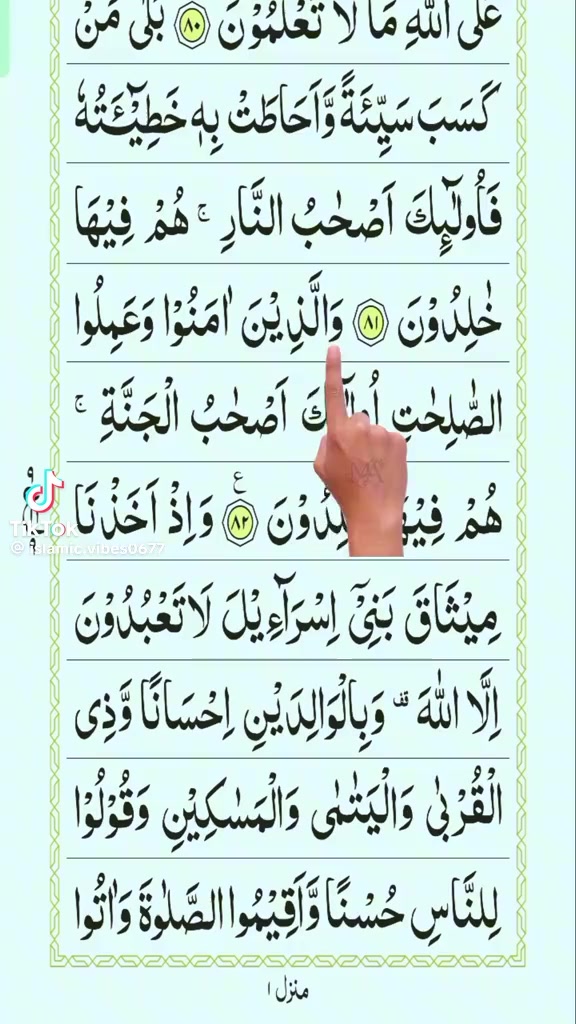 عَلَى اللّٰهِ مَا لَا تَعْلَمُوْنَ ۝۸۰ بَلٰى مَنْ
كَسَبَ سَيِّئَةً وَّاَحَاطَتْ بِهٖ خَطِيْٓـَٔتُهٗ
فَاُولٰٓئِكَ اَصْحٰبُ النَّارِ ۚ هُمْ فِيْهَا
خٰلِدُوْنَ ۝۸۱ وَالَّذِيْنَ اٰمَنُوْا وَعَمِلُوا
الصّٰلِحٰتِ اَصْحٰبُ الْجَنَّةِ ۚ
هُمْ ۝۸۲ ع وَاِذْ اَخَذْنَا
مِيْثَاقَ بَنِيْٓ اِسْرَآءِيْلَ لَا تَعْبُدُوْنَ
اِلَّا اللّٰهَ قف وَبِالْوَالِدَيْنِ اِحْسَانًا وَّذِى
الْقُرْبٰى وَالْيَتٰمٰى وَالْمَسٰكِيْنِ وَقُوْلُوْا
لِلنَّاسِ حُسْنًا وَّاَقِيْمُوا الصَّلٰوةَ وَاٰتُوا
منزل ۱
TikTok
@islamic.vibes0677